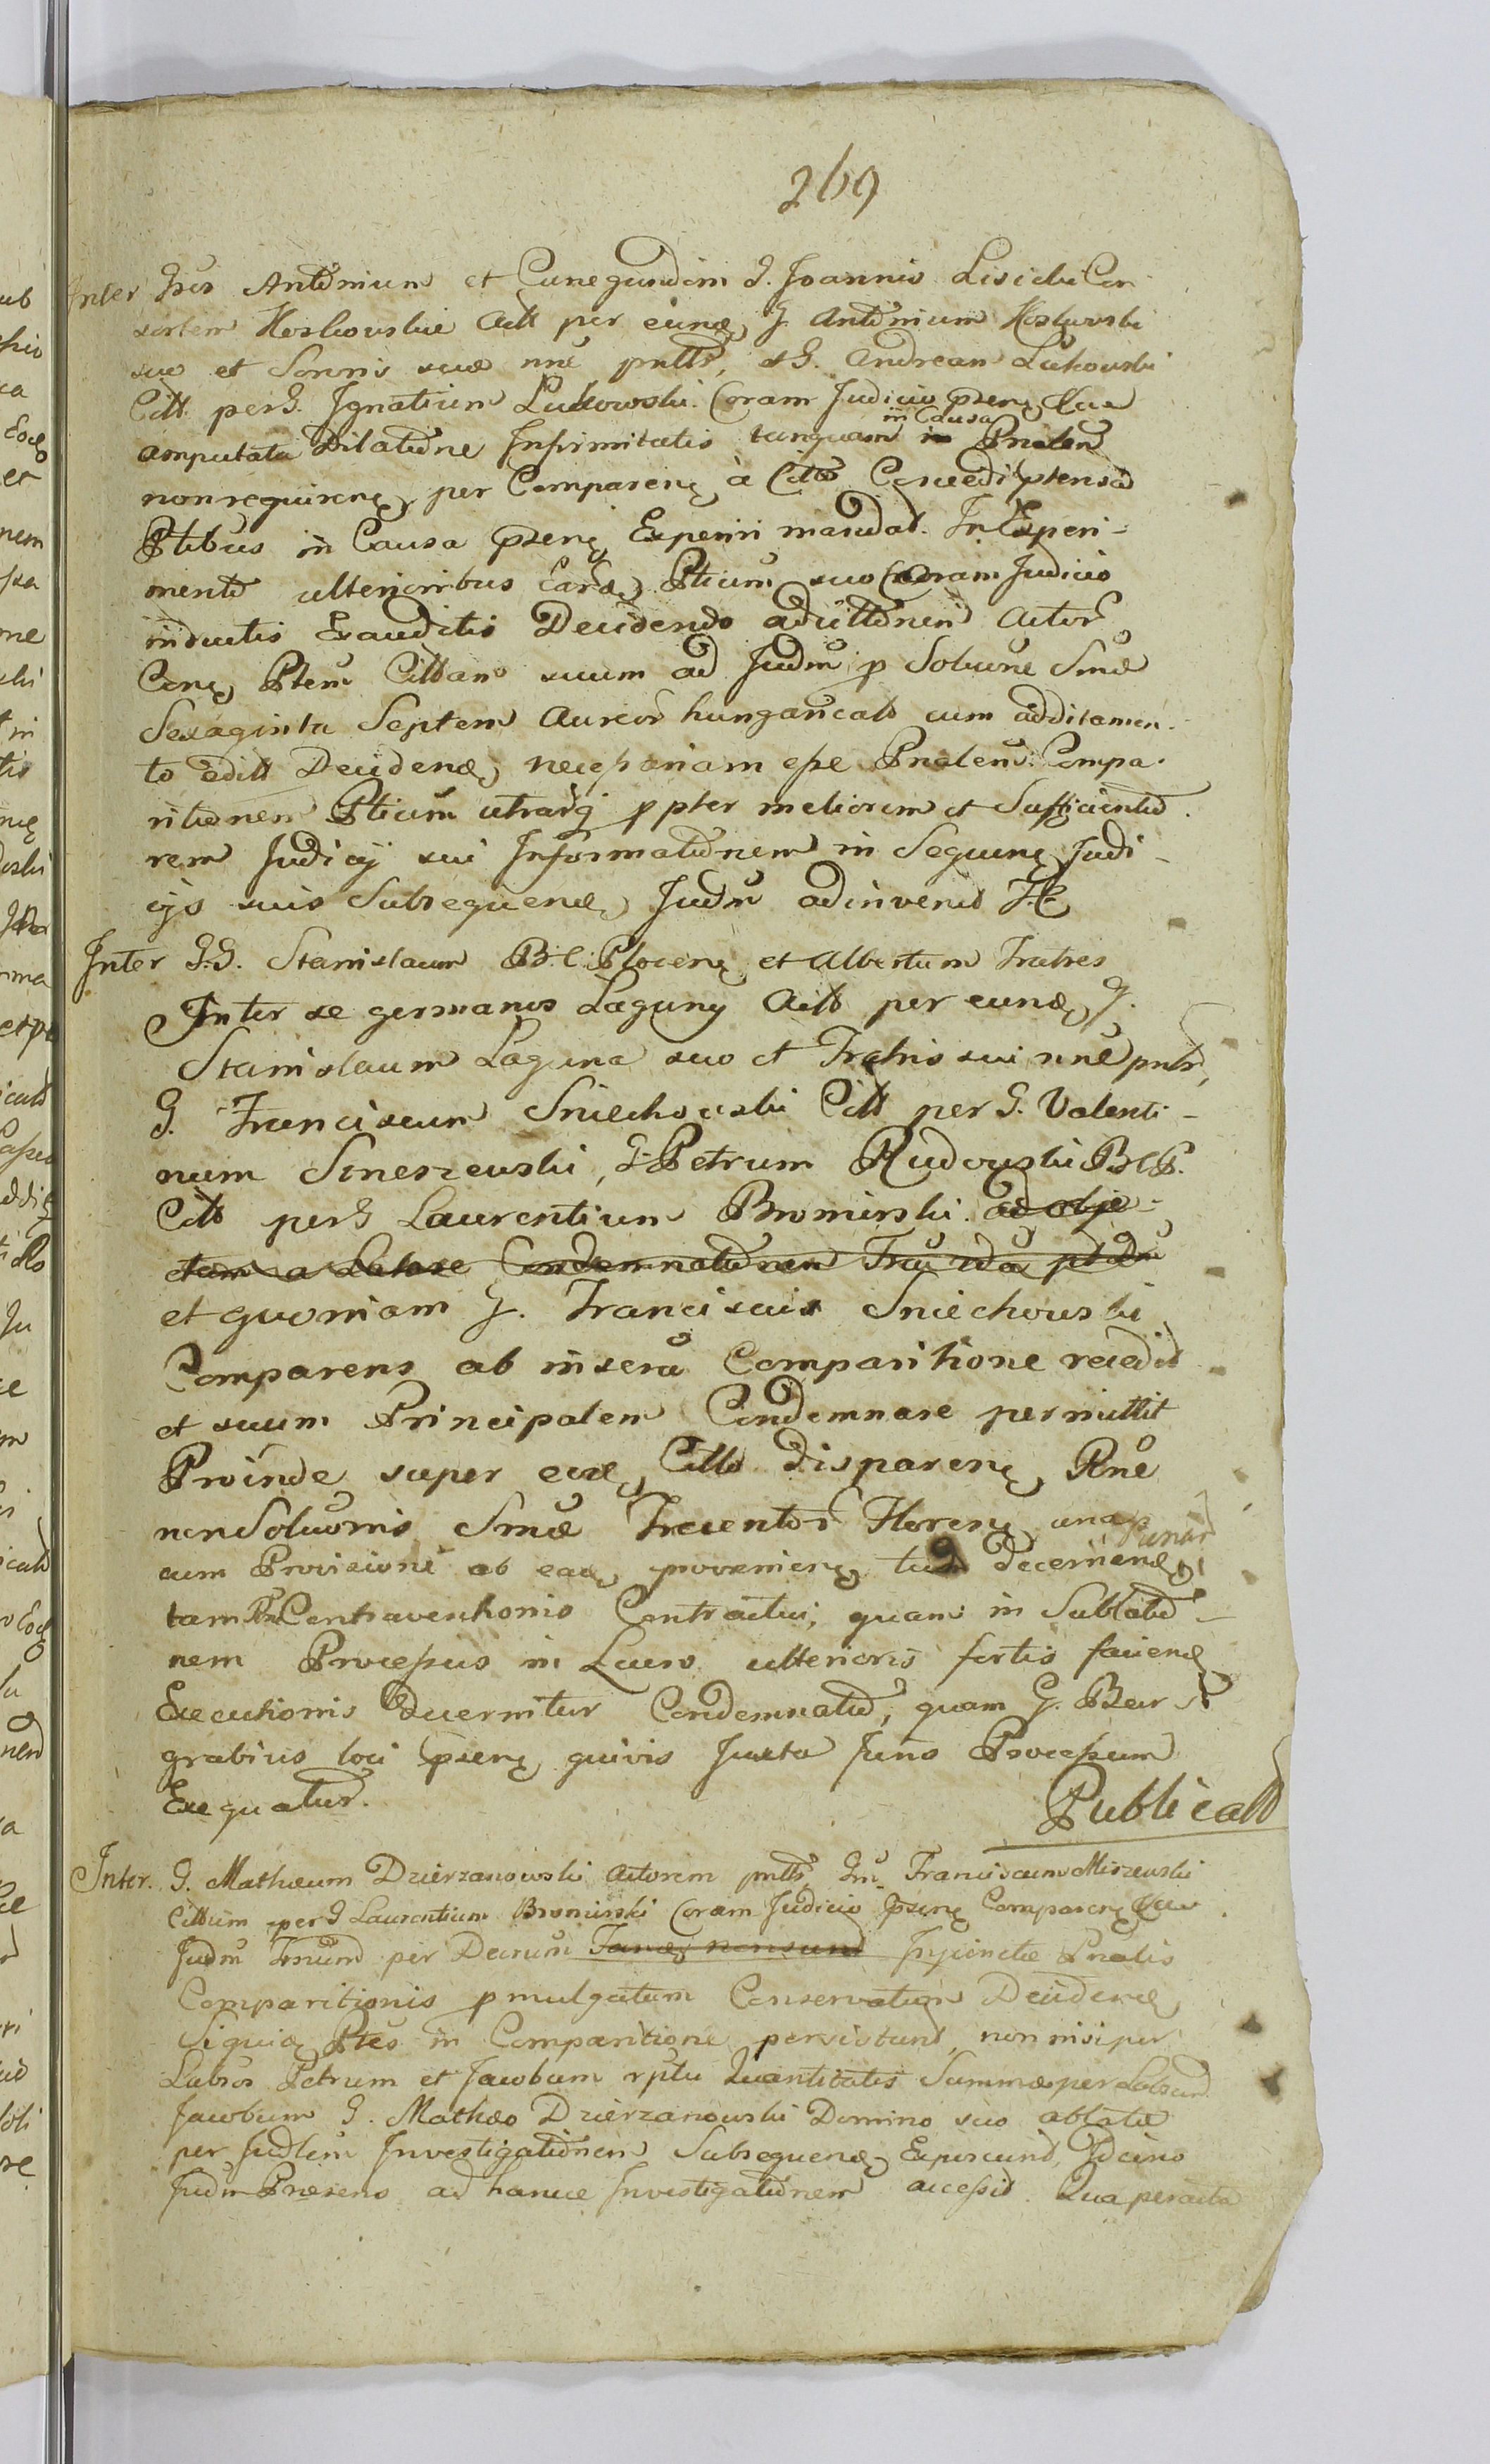 269
Inter Gsos Antonium et Cunegundim G. Joannis Lisicki Con
sortem Koskowskie Actt per eund G. Antonium Koskowski
suo et Sororis suæ nne pnttt, et G. Andream Lukowski
Citt. per G. Ignatium Lukowski. Coram Judicio psenę
amputata Dilatione Infirmitatis tanquam in Causa Pnalem
non requirenę per Comparenę à Citto
Ptibus in Causa psenę Experiri mandat. In Experi-
mento ulterioribus Eard Ptium suo Coram Judicio
inductis Exauditis Decidendo Actor
Cenę Ptem Cittam suum ad Judm p Soluone Smæ
Sexaginta Septem Aureor hungaricalb cum additamen-
to editt Decidend, necessariam esse Pnalem Compa-
ritionem Ptium utrarq ppter meliorem et Sufficientio
rem Judicij sui Informationem in Sequenę Judi-
cijs suis Subsequend Judm adinvenit
Inter G.G. Stanislaum B:C: Plocenę et Albertum Fratres
Inter se germanos Laguny Actt per eund G.
Stanislaum Laguna suo et Fratris sui nne pntt,
G. Franciscum Sniechowski Citt per G. Valenti-
num Smeszewski, G. Petrum Rudowski B.C.P.
Citt per G Laurentium Bromirski. ad obje-
ctam a Latore Condemnationem
et quoniam G. Franciscus Sniechowski
Comparens ab inserta Comparitione recedit
et suum Principalem Condemnare permittit
Proinde super eod, Citto disparenę, Rne
non Soluonis Smæ Trecentor Florenę una
cum Provisione ab ead provenienę tum decernend
tam Rne Contraventionis Contractui, quam in Sublatio-
nem Processus in Lucro ulterioris fortis faciend
Executionis decernitur Condemnatio, quam G. Bur
grabius loci psenę quivis Juxta Juris Processum
Exequatur.
Publicatt
Inter. G. Mathæum Dzierzanowski Actorem pntt Gm Franciscum Miszewski
Cittum per G Laurentium Bromirski Coram Judicio psenę Comparenę
Judm per Decrum Injunctæ Pnalis
Comparitionis pmulgatum Conservatum Decidend
Siquid Ptes in Comparitione persistunt, non nisi per
Labros Petrum et Jacobum rptu Quantitatis Summæ per Labrum
Jacobum G. Mathæo Dzierzanowski Domino suo ablatæ
per Judlem Investigationem Subsequend Exposcunt, Idcirco
Judm Præsens ad hancce Investigationem accessit. Qua peracta